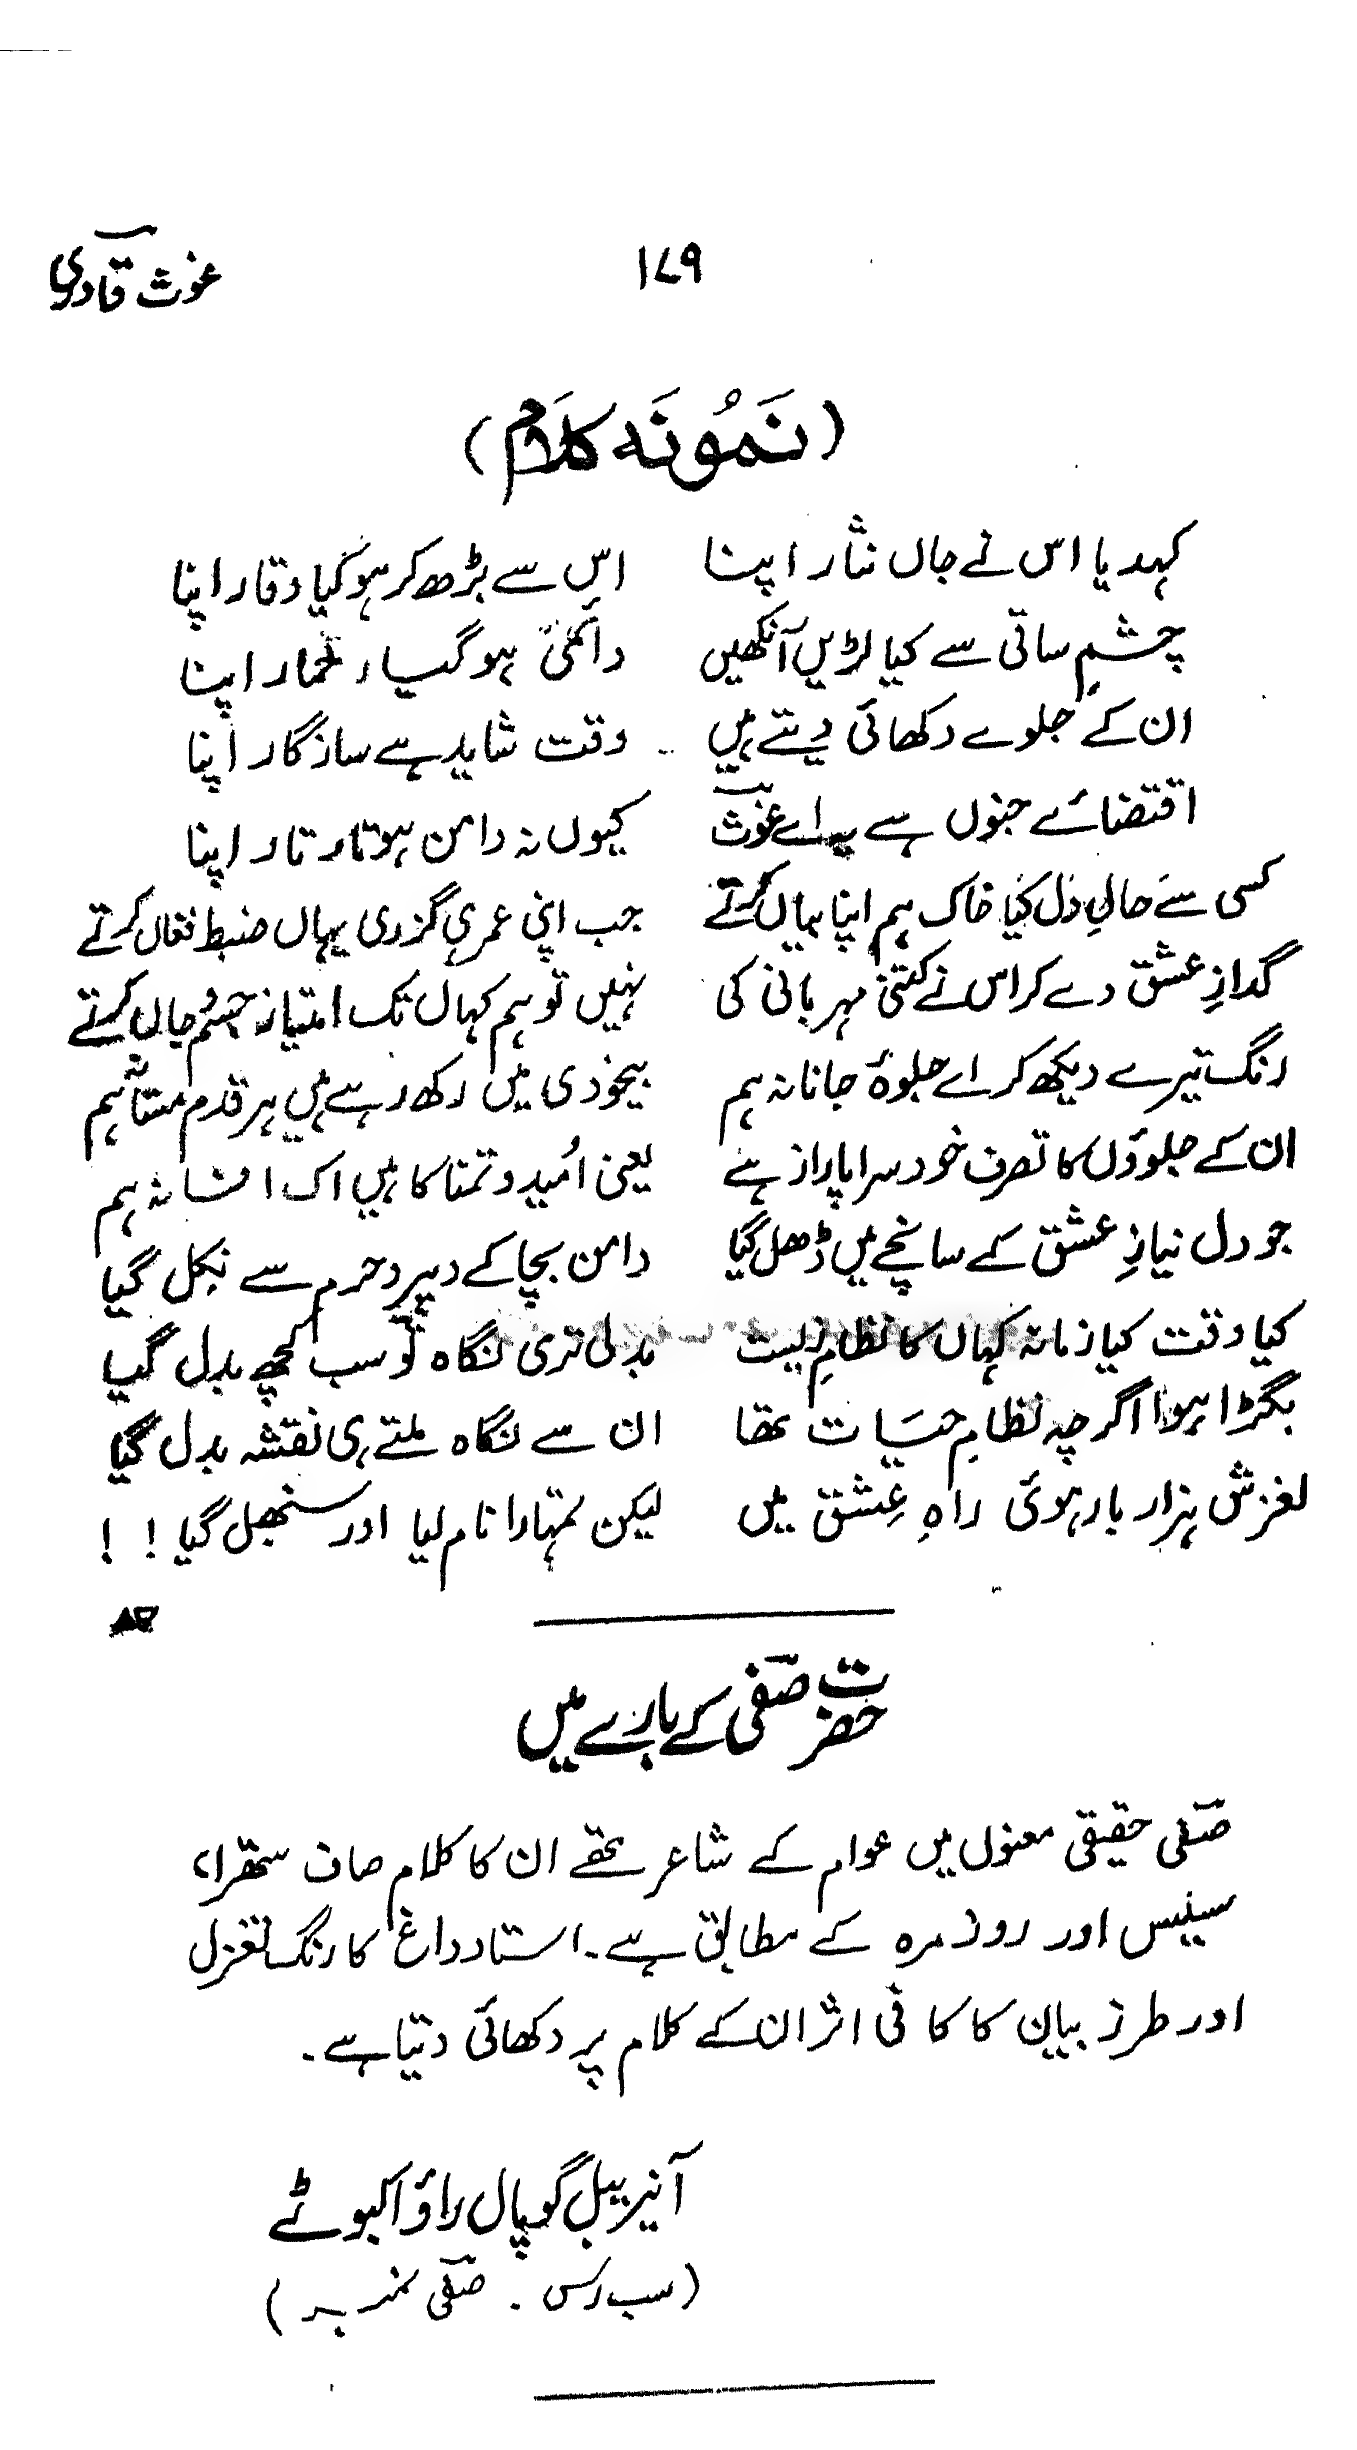 غوث قادری
۱۷۹
(نَمُونَہ کَلَام)
کہدیا اس نے جاں نثار اپنا اس سے بڑھ کر ہو کیا وقار اپنا
چشمِ ساقی سے کیا لڑیں آنکھیں دائمی ہو گیا خُمار اپنا
ان کے جلوے دکھائی دیتے ہیں وقت شاید ہے سازگار اپنا
اقتضائے جنوں ہے یہ اے غوثؔ کیوں نہ دامن ہو تار تار اپنا
کسی سے حالِ دل کیا خاک ہم اپنا بیاں کرتے جب اپنی عمر ہی گزری یہاں ضبط فغاں کرتے
گدازِ عشق دے کر اس نے کتنی مہربانی کی نہیں تو ہم کہاں تک امتیازِ جسم و جاں کرتے
رنگ تیرے دیکھ کر اے جلوۂ جانانہ ہم بیخودی میں رکھ رہے ہیں ہر قدم مستانہ ہم
ان کے جلوؤں کا تصرف خود سراپا راز ہے یعنی اُمید و تمنا کا ہیں اک افسانہ ہم
جو دل نیازِ عشق کے سانچے میں ڈھل گیا دامن بچا کے دیر و حرم سے نکل گیا
کیا وقت کیا زمانہ کہاں کا نظامِ زیست بدلی تری نگاہ تو سب کچھ بدل گیا
بگڑا ہوا اگرچہ نظامِ حیَات تھا ان سے نگاہ ملتے ہی نقشہ بدل گیا
لغزش ہزار بار ہوئی راہِ عِشق میں لیکن تمہارا نام لیا اور سنبھل گیا ! !
حضرت صفیؔ کے بارے میں
صفیؔ حقیقی معنوں میں عوام کے شاعر تھے ان کا کلام صاف ستھرا،
سلیس اور روزمرہ کے مطابق ہے۔ استاد داغ کا رنگ تغزل
اور طرز بیان کا کافی اثر ان کے کلام پر دکھائی دیتا ہے۔
آنریبل گوپال راؤ اکبوٹے
(سب رس ۔ صفیؔ نمبر)